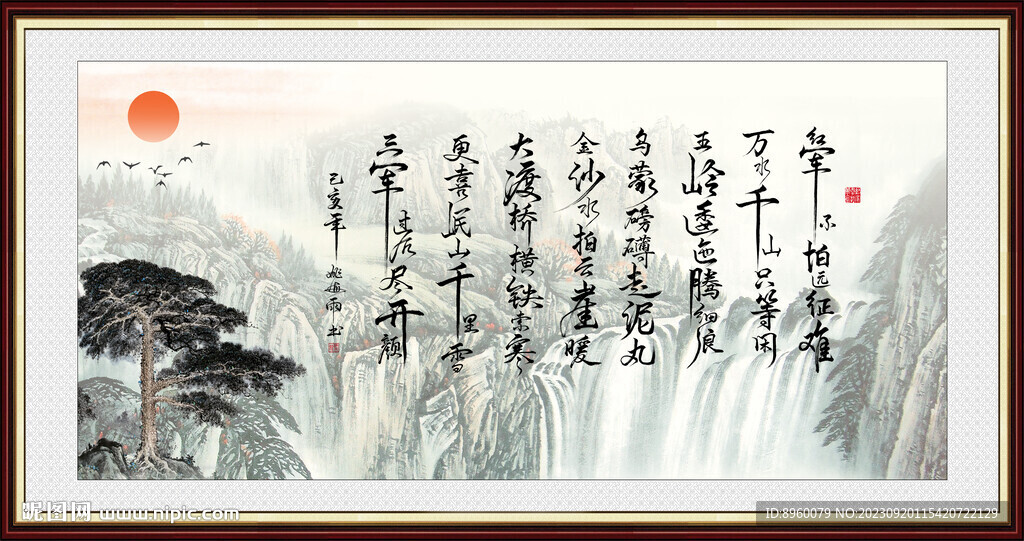 红军不怕远征难
万水千山只等闲
五岭逶迤腾细浪
乌蒙磅礴走泥丸
金沙水拍云崖暖
大渡桥横铁索寒
更喜岷山千里雪
三军过后尽开颜
己亥年 雨书
昵图网 www.nipic.com
ID:8960079 NO:20230920115420722129